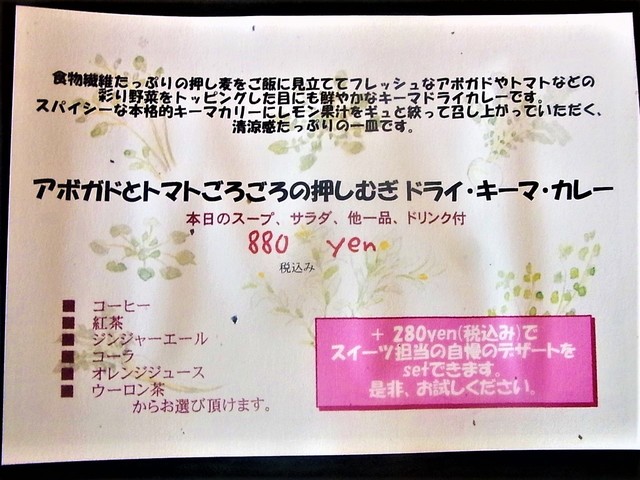 食物繊維たっぷりの押し麦をご飯に見立ててフレッシュなアボガドやトマトなどの
彩り野菜をトッピングした目にも鮮やかなキーマドライカレーです。
スパイシーな本格的キーマカリーにレモン果汁をギュと絞って召し上がっていただく、
清涼感たっぷりの一皿です。
アボガドとトマトごろごろの押しむぎ ドライ・キーマ・カレー
本日のスープ、サラダ、他一品、ドリンク付
880 yen
税込み
■ コーヒー
■ 紅茶
■ ジンジャーエール
■ コーラ
■ オレンジジュース
■ ウーロン茶
からお選び頂けます。
+ 280yen(税込み)で
スイーツ担当の自慢のデザートを
setできます。
是非、お試しください。